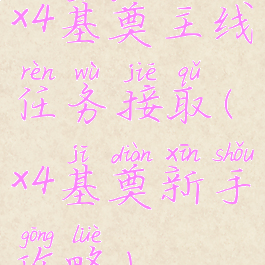 ×4基奠主线
rèn wù jiē qǔ
任务接取(
jī diàn xīn shǒu
×4基奠新手
gōng lüè
攻略)